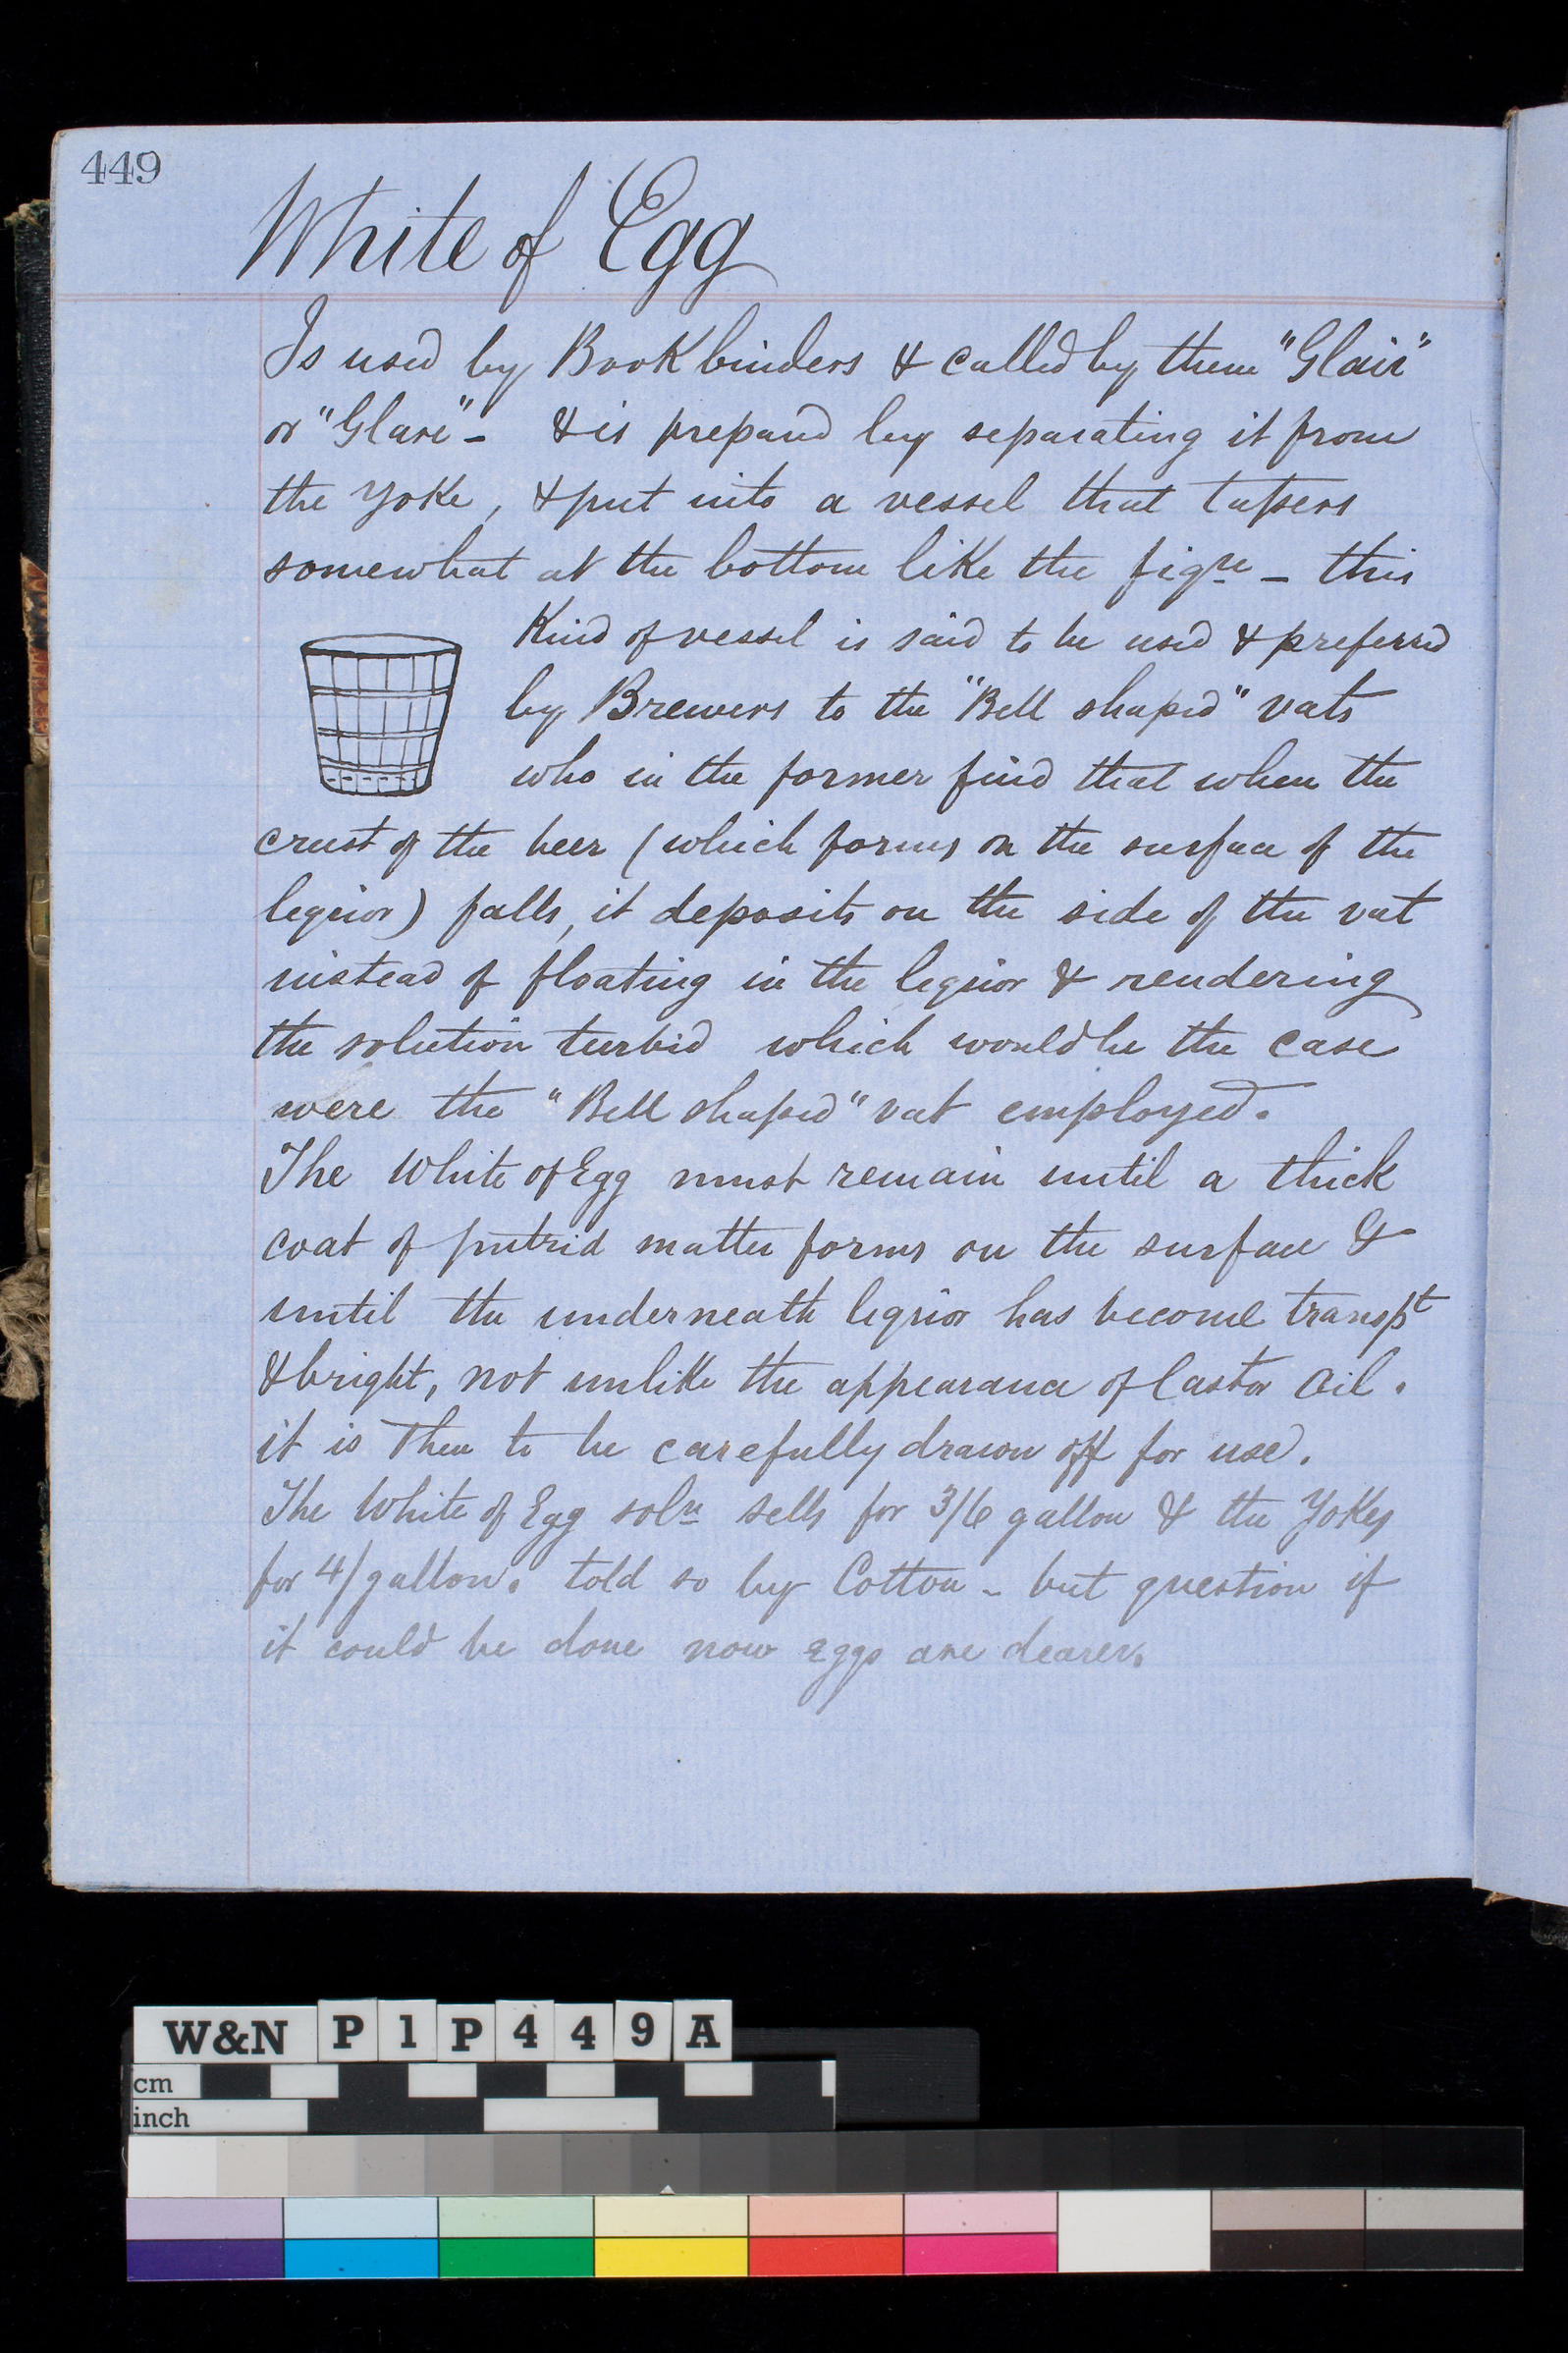 449
White of Egg
Is used by Bookbinders & called by them "Glair"
or "Glare" - & is prepared by separating it from
the Yoke, & put into a vessel that tapers
somewhat at the bottom like the figre - this
Kind of vessel is said to be used & preferred
by Brewers to the "Bell shaped" vats
who in the former find that when the
crust of the beer (which forms on the surface of the
liquor) falls, it deposits on the side of the vat
instead of floating in the liquor & rendering
the solution turbid which would be the case
were the "Bell shaped" vat employed.
The White of Egg must remain until a thick
coat of putrid matter forms on the surface &
until the underneath liquor has become transpt
& bright, not unlike the appearance of Castor Oil.
it is then to be carefully drawn off for use.
The White of Egg soln sells for 3/6 gallon & the Yokes
for 4/ gallon. told so by Cotton - but question if
it could be done now eggs are dearer.
W&N P1P449A
cm
inch